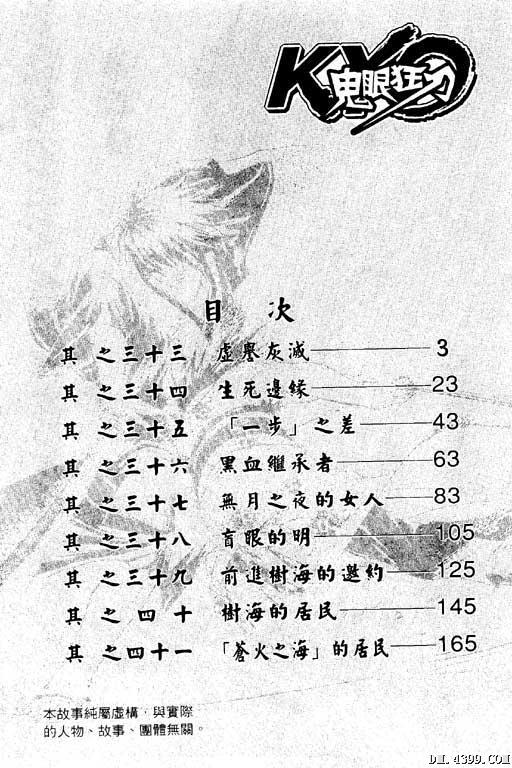 KYO
鬼眼狂刀
目 次
其之三十三 虛譽灰滅 3
其之三十四 生死邊緣 23
其之三十五 「一步」之差 43
其之三十六 黑血繼承者 63
其之三十七 無月之夜的女人 83
其之三十八 盲眼的明 105
其之三十九 前進樹海的邀約 125
其之四十 樹海的居民 145
其之四十一 「蒼火之海」的居民 165
本故事純屬虛構，與實際
的人物、故事、團體無關。
DM.4399.COM